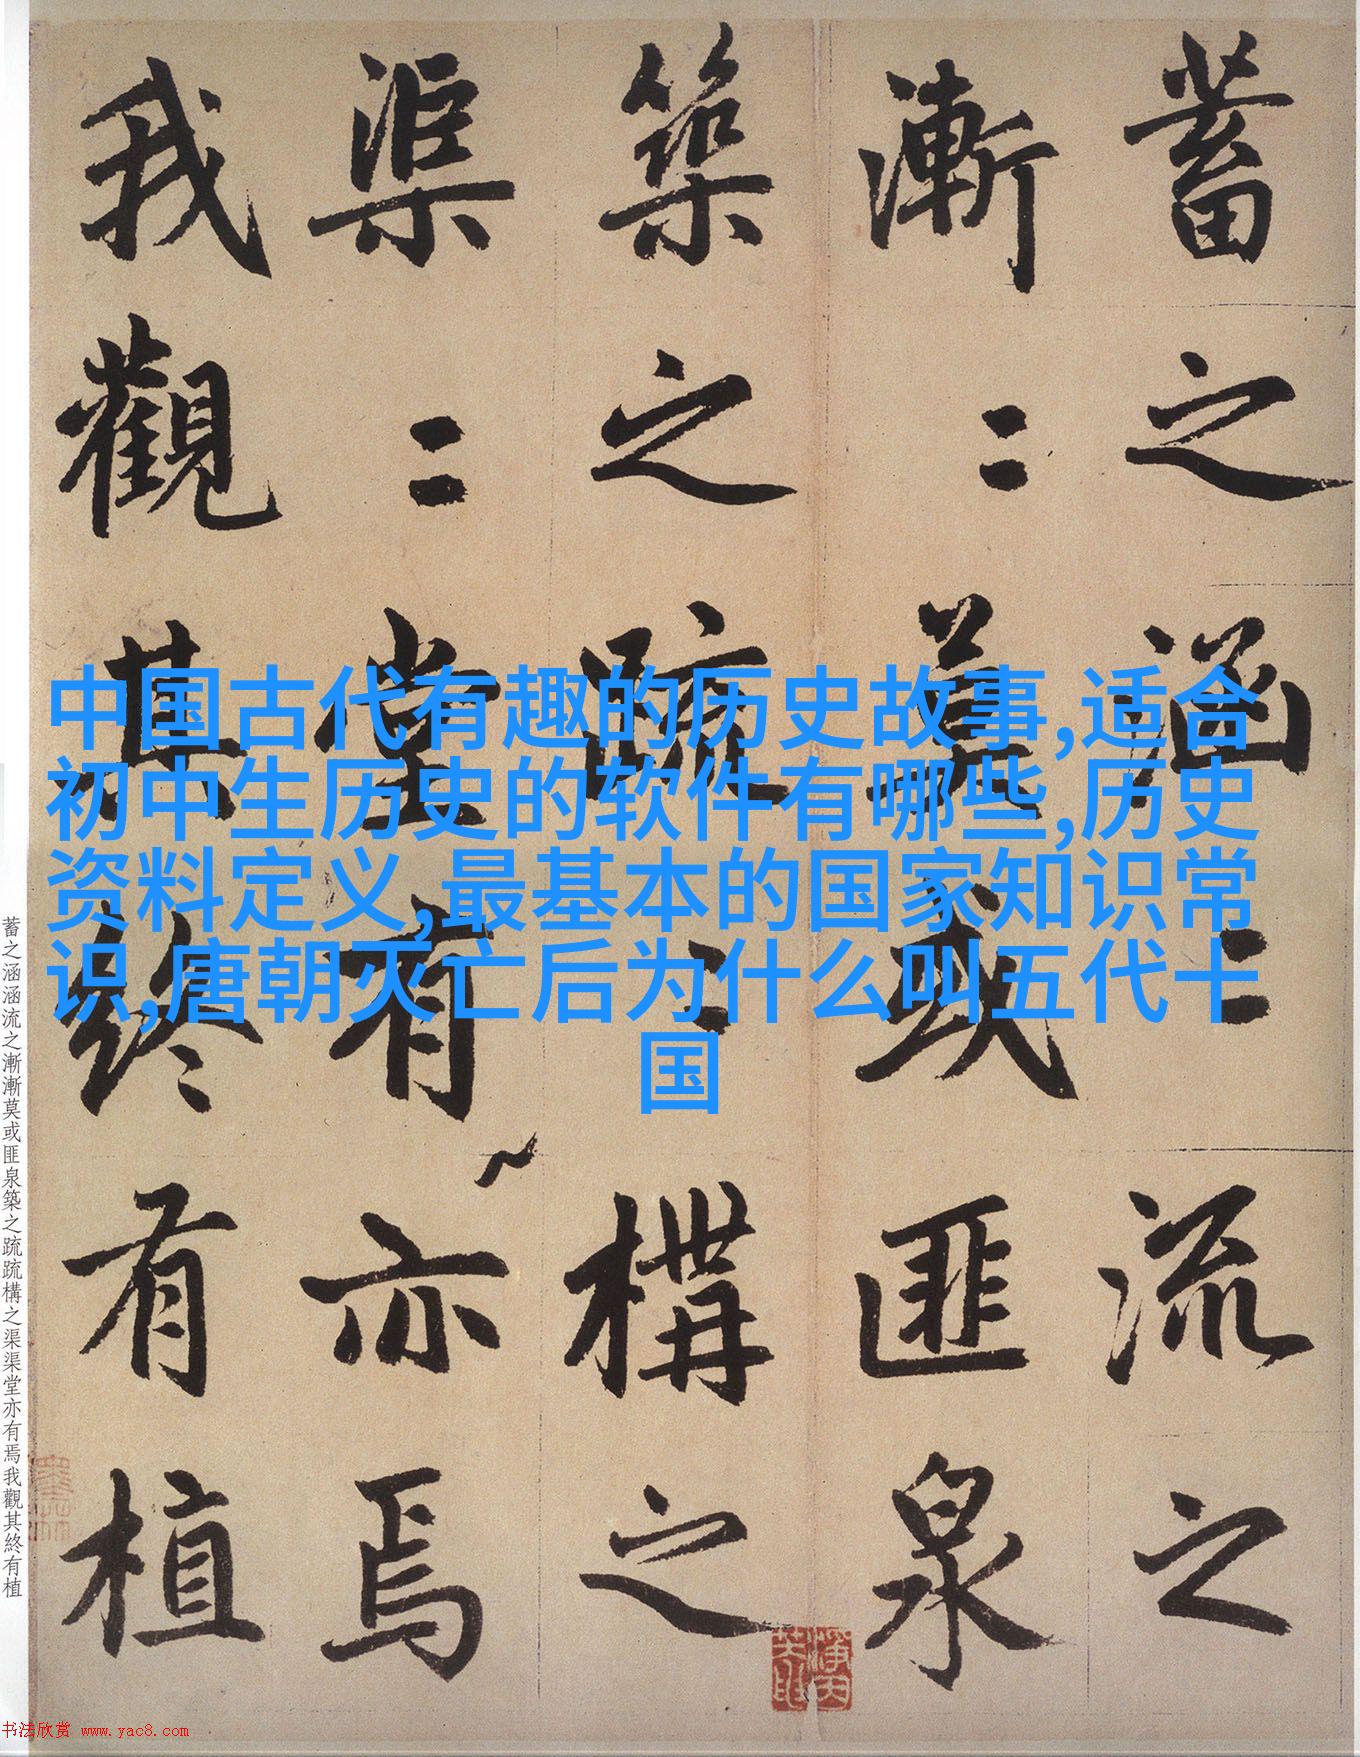 蓄之涵涵流之
漸漸莫或匪泉
築之疏疏構之
渠渠堂有亦焉
我觀其終有植
中国古代有趣的历史故事,适合
初中生历史的软件有哪些,历史
资料定义,最基本的国家知识常
识,唐朝灭亡后为什么叫五代十
国
蓄之涵涵流之漸漸莫或匪泉築之疏疏構之渠渠堂亦有焉我觀其終有植
书法欣赏 www.yac8.com